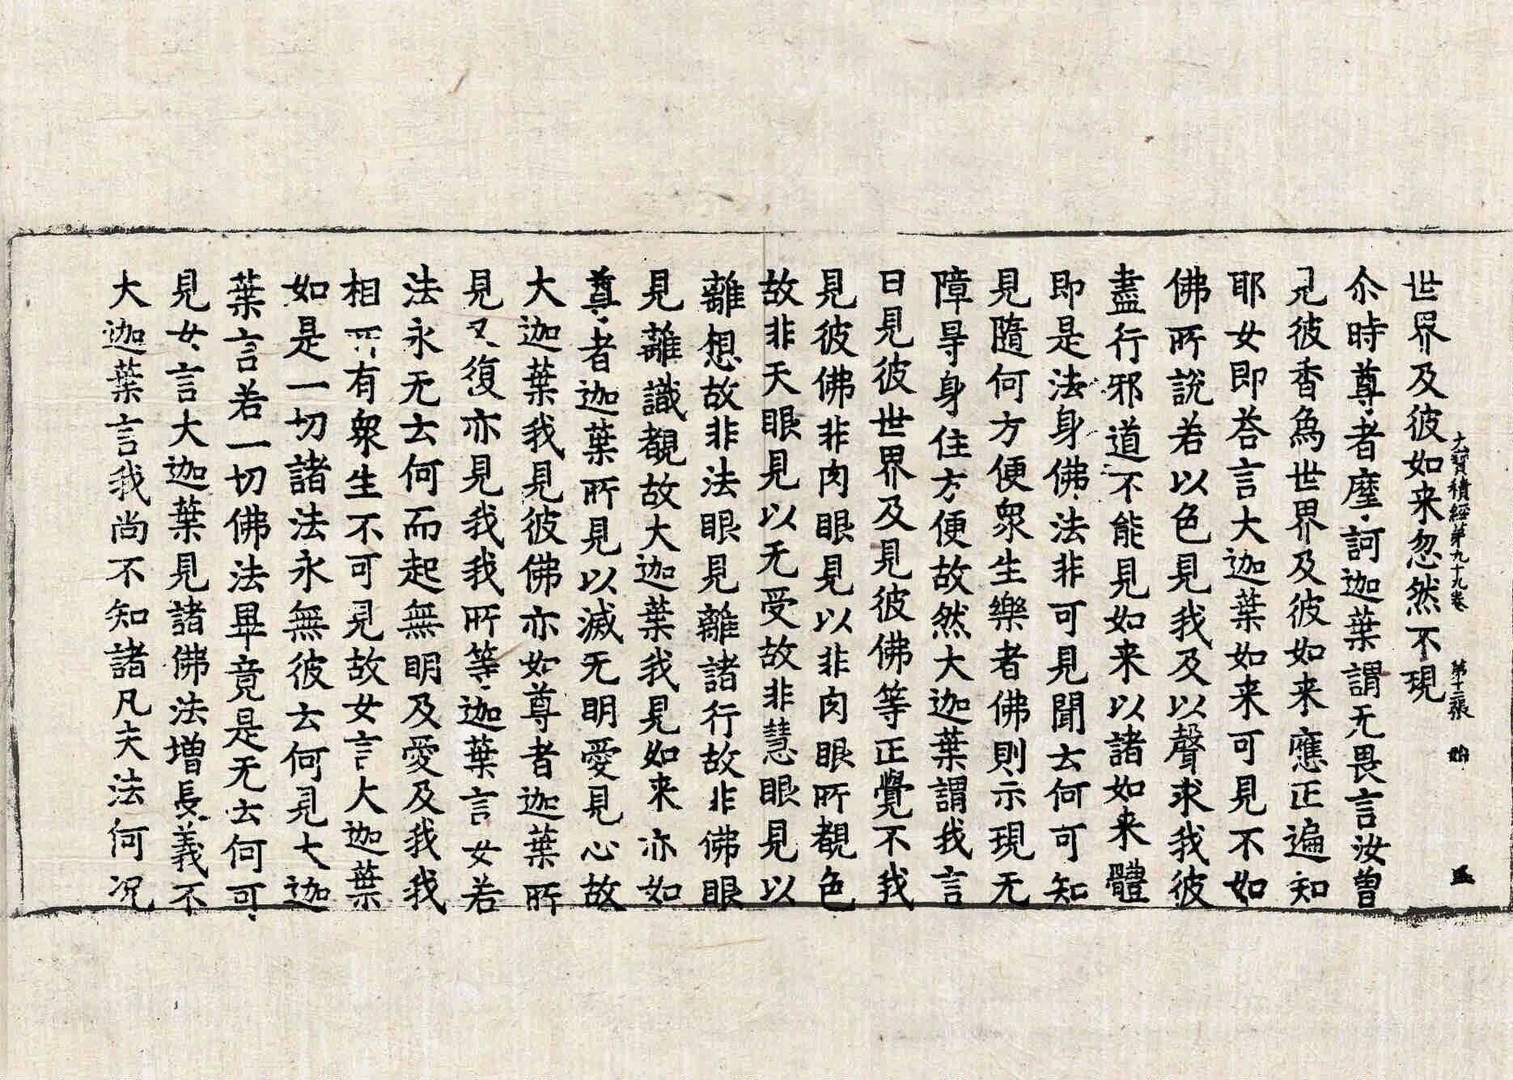 大寶積經第九十九卷　第十二張　始
世界及彼如来忽然不現
尒時尊者摩訶迦葉謂无畏言汝曾
見彼香爲世界及彼如来應正遍知
耶女即荅言大迦葉如来可見不如
佛所說若以色見我及以聲求我彼
盡行邪道不能見如来以諸如来體
即是法身佛法非可見聞云何可知
見隨何方便衆生樂者佛則示現无
障㝵身住方便故然大迦葉謂我言
日見彼世界及見彼佛等正覺不我
見彼佛非肉眼見以非肉眼所覩色
故非天眼見以无受故非慧眼見以
離想故非法眼見離諸行故非佛眼
見離識覩故大迦葉我見如来亦如
尊者迦葉所見以滅无明愛見心故
大迦葉我見彼佛亦如尊者迦葉所
見又復亦見我我所等迦葉言女若
法永无云何而起無明及愛及我我
相所有衆生不可見故女言大迦葉
如是一切諸法永無彼云何見大迦
葉言若一切佛法畢竟是无云何可
見女言大迦葉見諸佛法增長義不
大迦葉言我尚不知諸凡夫法何况